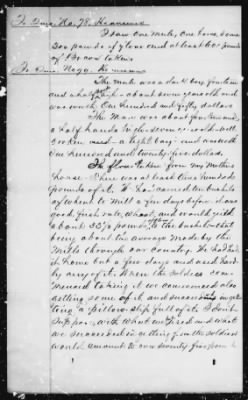 To Ques. No. 78. He answers
I saw one mule, one horse, some
300 pounds of flour and at least 600 pounds
of Bacon taken
To Ques. No. 79. He answers
The mule was a dark bay, fourteen
and a half high - about seven years old and
was worth, One hundred and fifty dollars
The Mare was about fourteen and
a half hands to
broken used - a light bay - and worth
One hundred and twenty five dollars.
The flour taken from my Mothers
house - There was at least three hundred
pounds of it. We had carried ten bushels
of wheat to Mill a few days before. It was
good, first rate, wheat, and would yield
about 33 1/3 pounds, to the bushel that
being about the average made by the
Mills through our Country. We had had
it home but a few days and used hard-
ly any of it. When the soldiers com-
menced taking it we commenced also
getting some of it and succeeded in get
ting a pillow slip full of it. I don't
suppose, with what we used and what
we succeeded in getting from the soldiers
would amount to over seventy five pounds